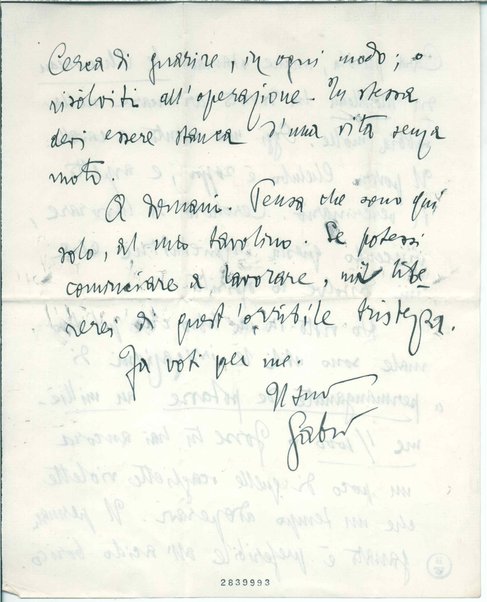 Cerca di guarire, in ogni modo; o
risolviti all'operazione. Tu stessa
devi essere stanca d'una vita senza
moto.
A domani. Pensa che sono qui
solo, al mio tavolino. Se potessi
cominciare a lavorare, mi libe-
rerei di quest'orribile tristezza.
Fa voti per me.
Il tuo
Gabri
2839993